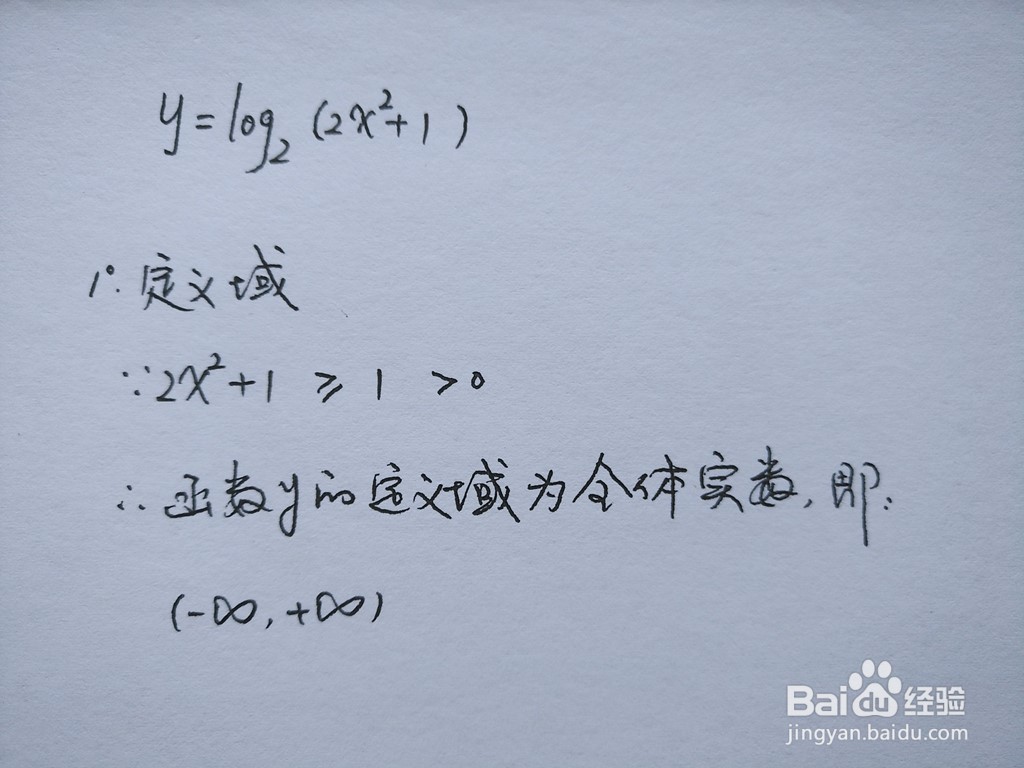 y=log₂(2x²+1)
1°.定义域
∵2x²+1 ≥ 1 >0
∴函数y的定义域为全体实数,即:
(-∞,+∞)
Bai du 经验
jingyan.baidu.com